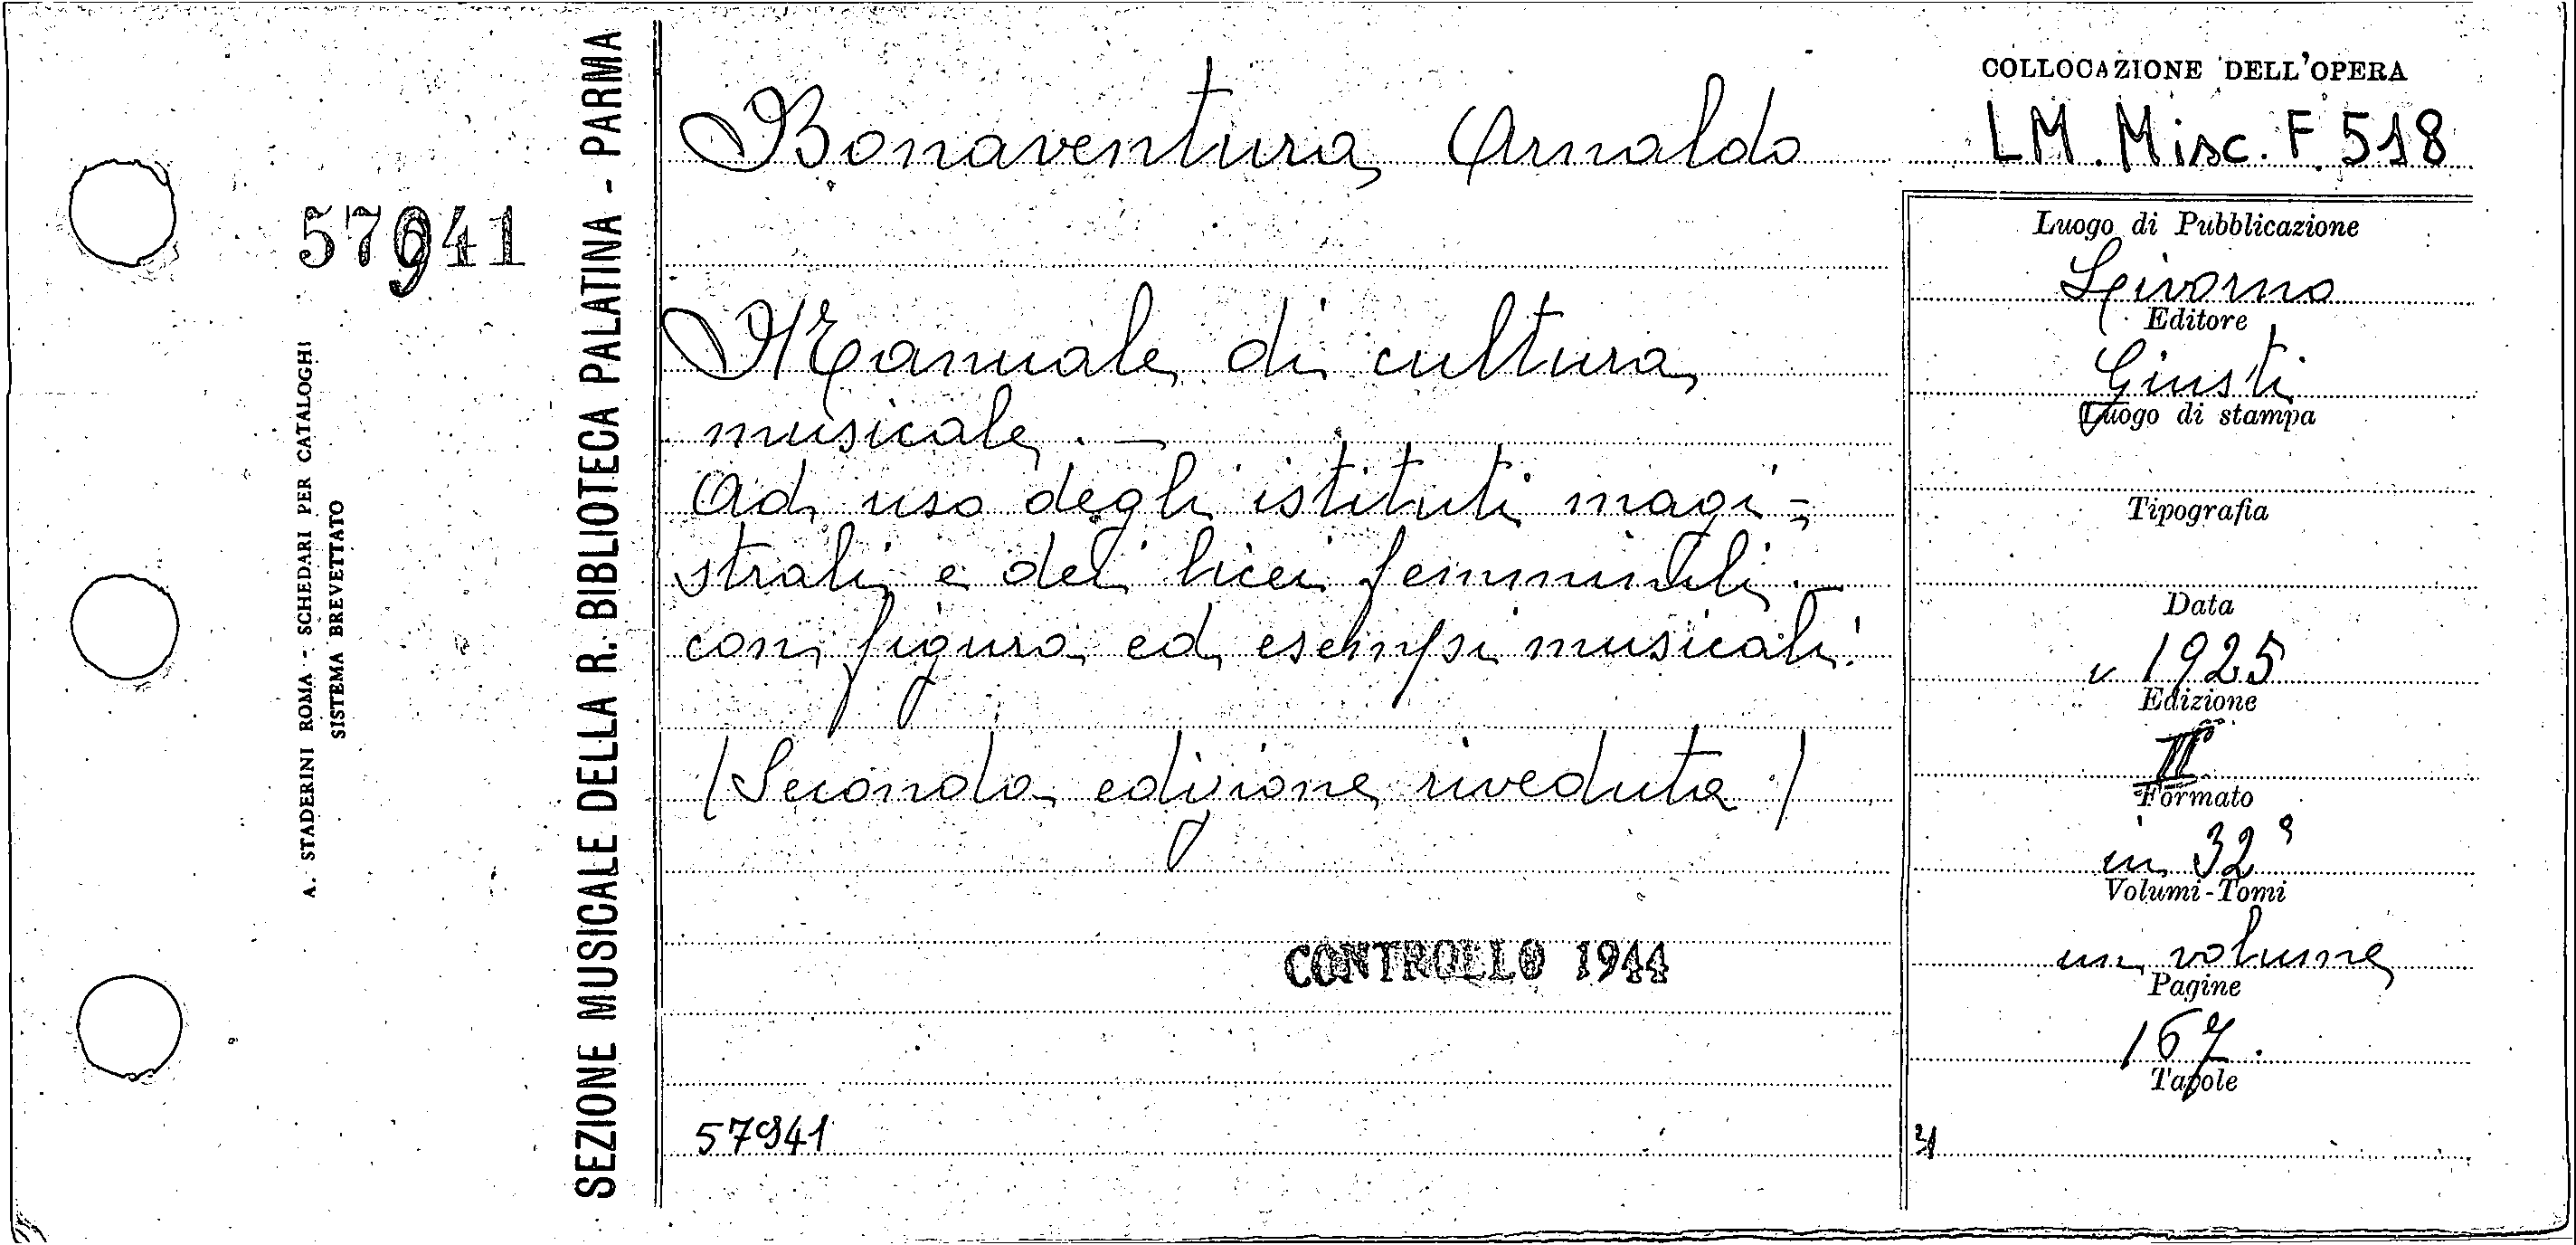 57941
A. STADERINI ROMA - SCHEDARI PER CATALOGHI
SISTEMA BREVETTATO
SEZIONE MUSICALE DELLA R. BIBLIOTECA PALATINA - PARMA
Bonaventura Arnaldo
Manuale di cultura
musicale. —
Ad uso degli istituti magi=
strali e dei licei femminili. —
con figura ed esempi musicali.
(Seconda edizione riveduta)
CONTROLLO 1944
57941
COLLOCAZIONE DELL'OPERA
LM. Misc. F. 518
Luogo di Pubblicazione
Livorno
Editore
Giusti
Luogo di stampa
Tipografia
Data
1925
Edizione
II
Formato
in 32°
Volumi-Tomi
un volume
Pagine
167.
Tavole